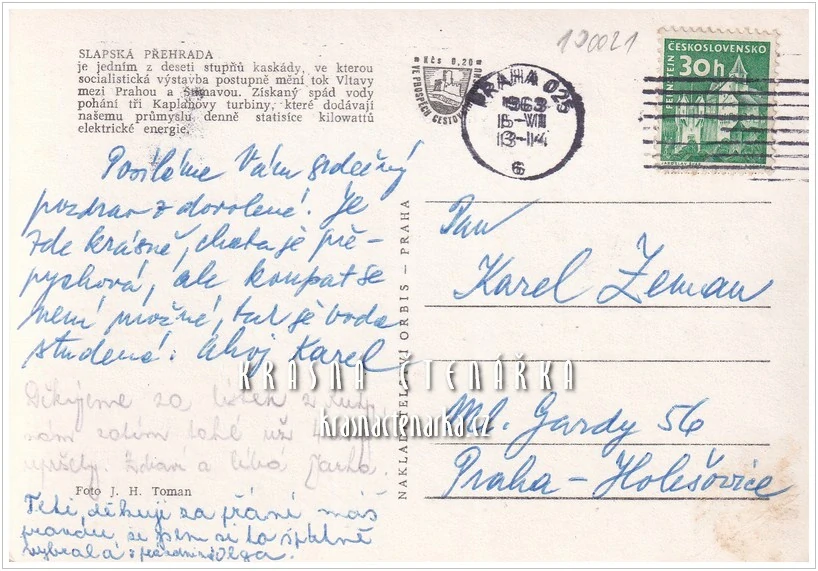 SLAPSKÁ PŘEHRADA
je jedním z deseti stupňů kaskády, ve kterou
socialistická výstavba postupně mění tok Vltavy
mezi Prahou a Šumavou. Získaný spád vody
pohání tři Kaplanovy turbiny, které dodávají
našemu průmyslu denně statisíce kilowattů
elektrické energie.
Posíláme Vám srdečný
pozdrav z dovolené. Je
zde krásně, chata je pře-
pychová, ale koupat se
není možné, tak je voda
studená. Ahoj Karel
Děkujeme za lístek z
nám zatím také už
upršely. Zdraví a líbá Jarka.
Foto J. H. Toman
Teti, děkuji za přání máš
pravdu, že jsem si to špatně
vybrala s prázdninami Olga.
NAKLADATELSTVÍ ORBIS — PRAHA
190021
Kčs 0,20
VE PROSPĚCH CESTOV
PRAHA 025
1963
16-VII
13-14
6
ČESKOSLOVENSKO
30h
PERNŠTEJN
Pan
Karel Zeman
Ml. Gardy 56
Praha - Holešovice
KRÁSNÁ ČTENÁŘKA
krasnactenarka.cz